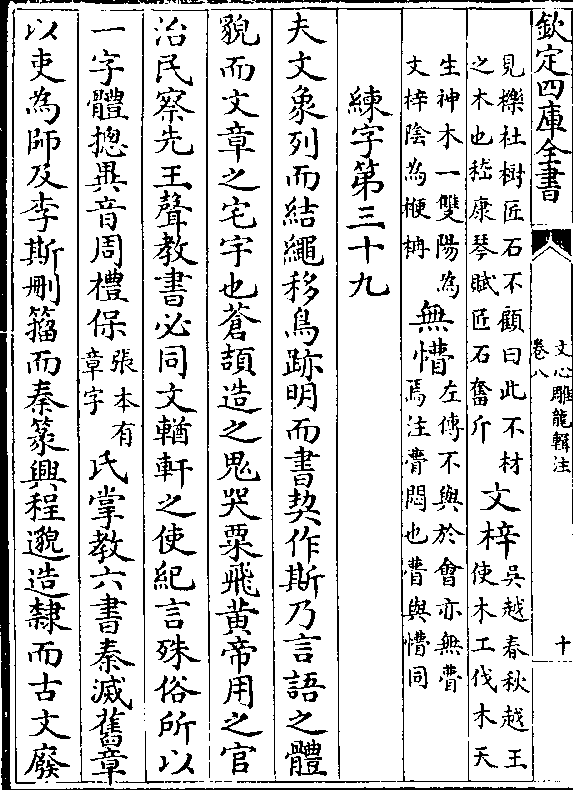 欽定四庫全書
文心雕龍輯注
卷八
十
見櫟社樹匠石不顧曰此不材
之木也嵇康琴賦匠石奮斤
文梓
吳越春秋越王
使木工伐木天
生神木一雙陽為
文梓陰為楩柟
無懵
左傳不與於會亦無瞢
焉注瞢悶也瞢與懵同
練字第三十九
夫文象列而結繩移鳥跡明而書契作斯乃言語之體
貌而文章之宅宇也蒼頡造之鬼哭粟飛黃帝用之官
治民察先王聲教書必同文輶軒之使紀言殊俗所以
一字體摠異音周禮保
張本有
章字
氏掌教六書秦滅舊章
以吏為師及李斯刪籀而秦篆興程邈造隸而古文廢